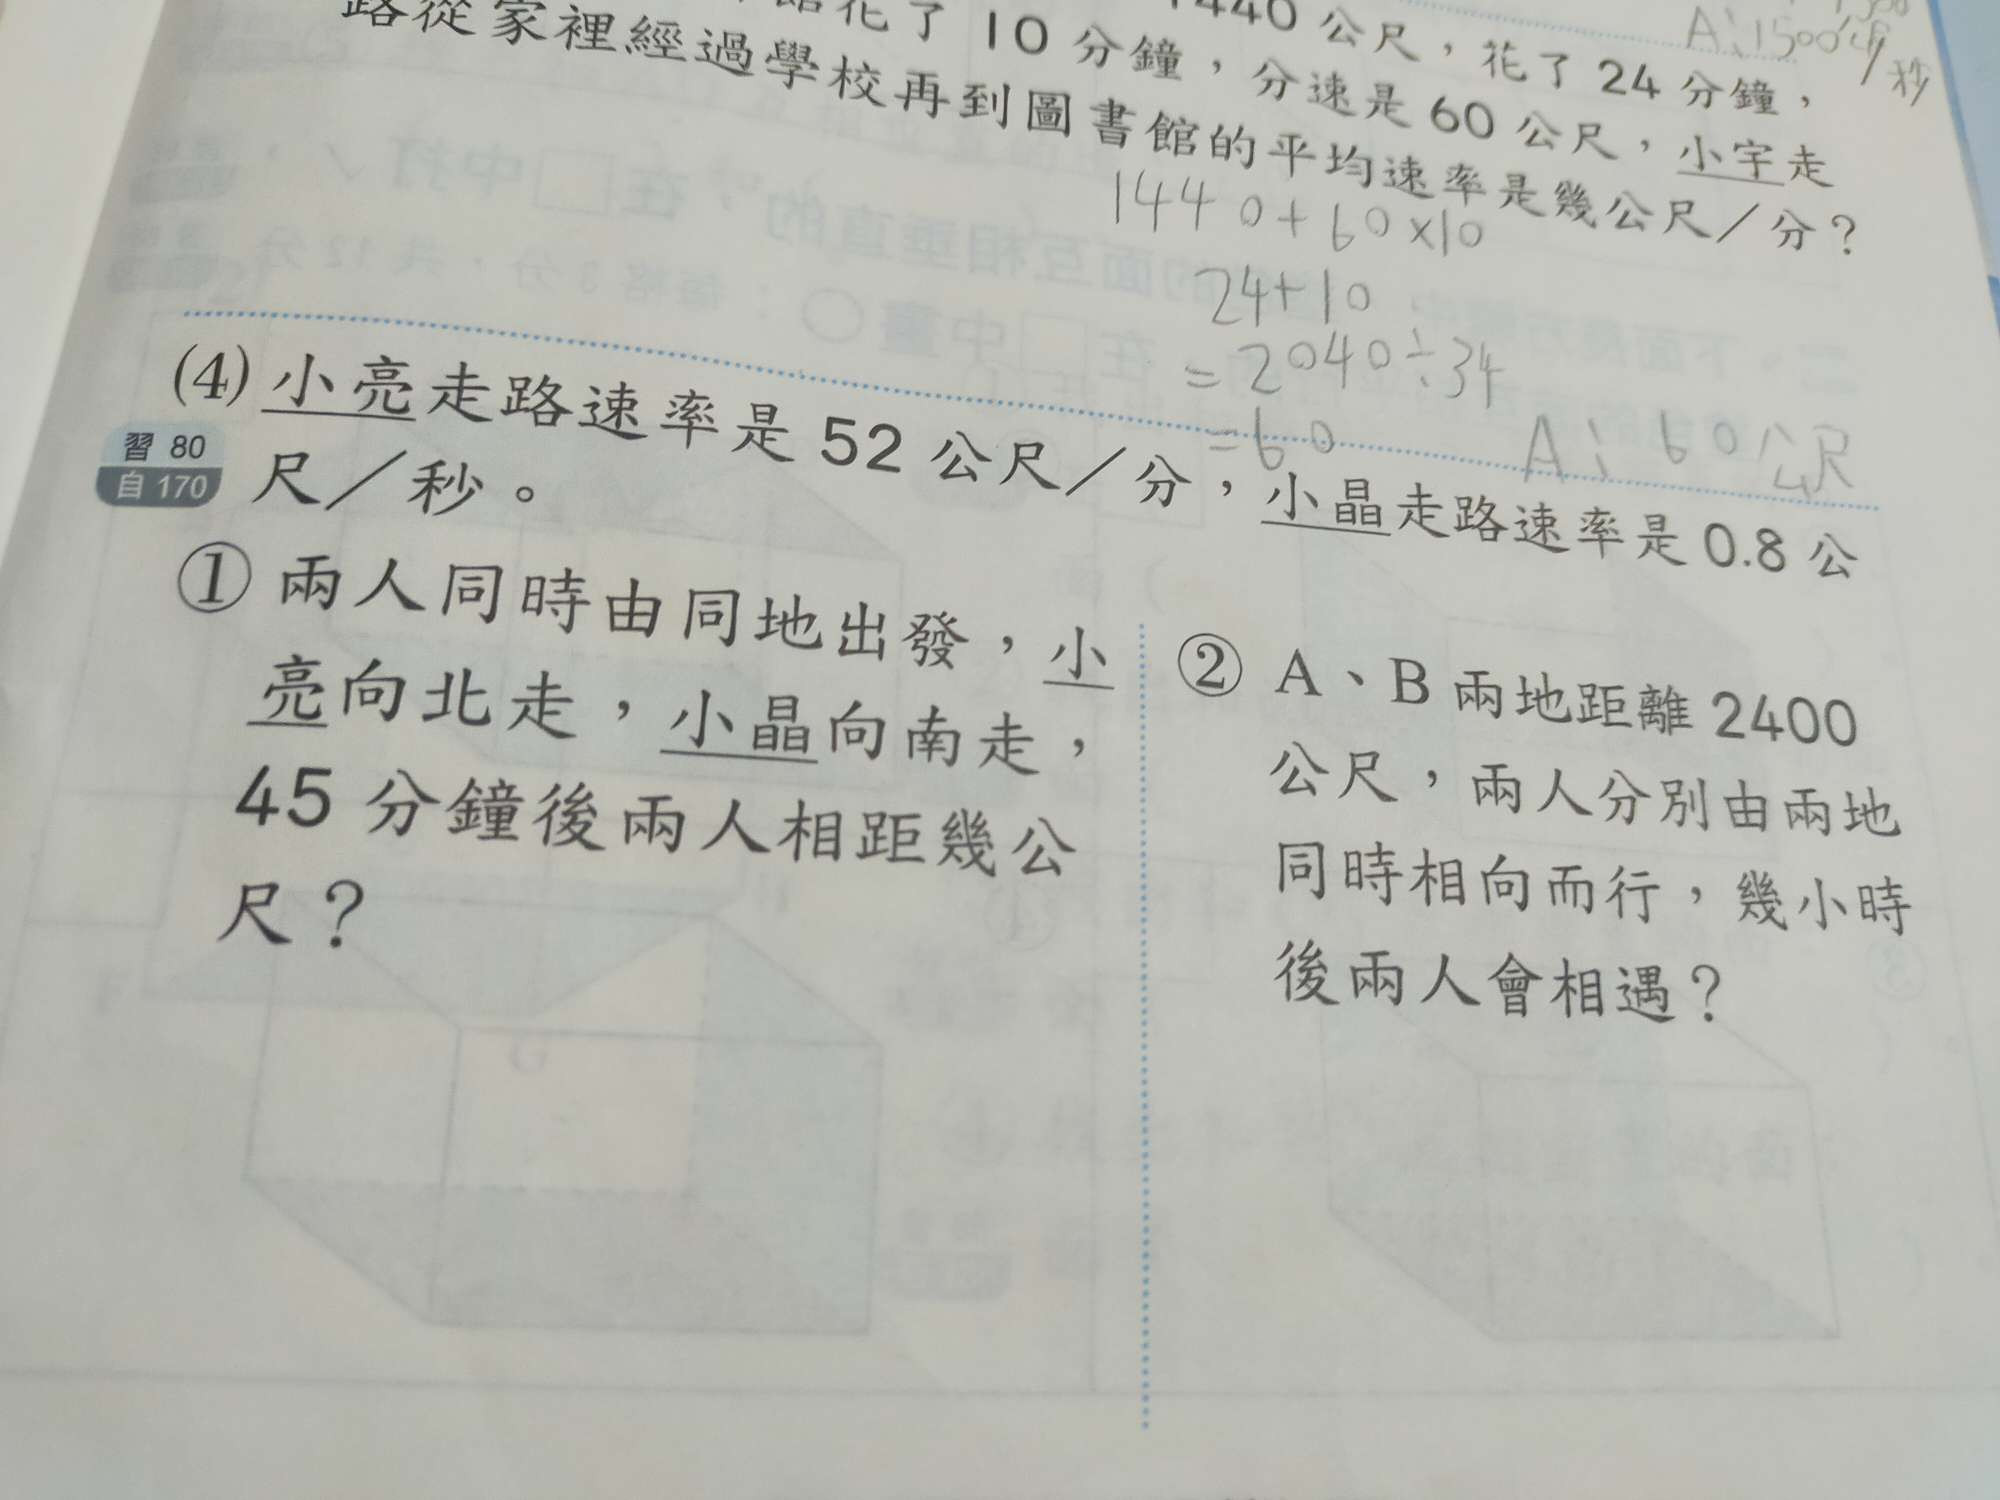 1440公尺，花了24分鐘，
A：1500
秒
館花了10分鐘，分速是60公尺，小宇走
路從家裡經過學校再到圖書館的平均速率是幾公尺／分？
1440+60×10
24+10
=2040÷34
=60
A：60公尺
(4)小亮走路速率是52公尺／分，小晶走路速率是0.8公
習 80
自 170
尺／秒。
①兩人同時由同地出發，小
亮向北走，小晶向南走，
45分鐘後兩人相距幾公
尺？
②A、B兩地距離2400
公尺，兩人分別由兩地
同時相向而行，幾小時
後兩人會相遇？